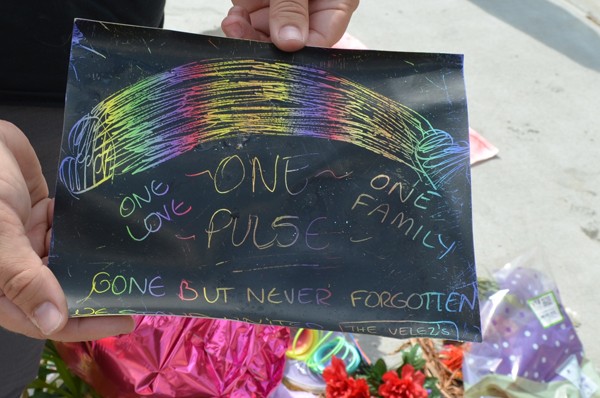 ~ONE~
ONE LOVE
ONE FAMILY
~PULSE~
GONE BUT NEVER FORGOTTEN
WE STAND UNITED THE VELEZ'S